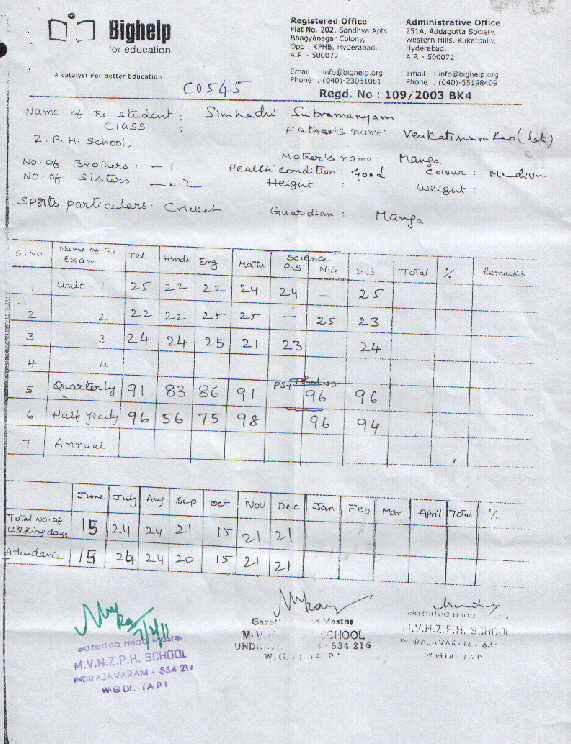 Bighelp
for education
A catalyst For Better Education
Registered Office
Flat No. 202, Sandhya Apts
Bhagyanagar Colony,
Opp. KPHB, Hyderabad.
A.P - 500072
Email : info@bighelp.org
Phone : (040)-23061061
Administrative Office
251A, Addagutta Society,
Western Hills, Kukatpally,
Hyderabad.
A.P. - 500072
email : info@bighelp.org
Phone : (040)-55198409
Regd. No : 109/2003 BK4
C0545
Name of the student : Simhadri Subramanyam
CLASS : Father's name: Venkateswara Rao (late)
Z.P.H. School,
Mother's name Manga
No. of Brothers : - 1 Health condition : Good Colour : Medium
No. of Sisters - 2 Height : Weight :
Sports particulars: Cricket Guardian : Manga
S.No Name of the Exam Tel Hindi Eng Math Science P.S N.S S.S Total % Remarks
Unit 25 22 22 24 24 - 25
2 2 22 22 25 25 - 25 23
3 3 24 24 25 21 23 24
4 4
5 Quarterly 91 83 86 91 96 96
6 Half Yearly 96 56 75 98 96 94
7 Annual
June July Aug Sep Oct Nov Dec Jan Feb Mar April Total %
Total No. of working days 15 24 24 21 15 21 21
Attendance 15 24 24 20 15 21 21
M.V.N.Z.P.H. SCHOOL
- 534 216
W.G.Dt. (A.P)
SCHOOL
- 534 216
M.V.N.Z.P.H. SCHOOL